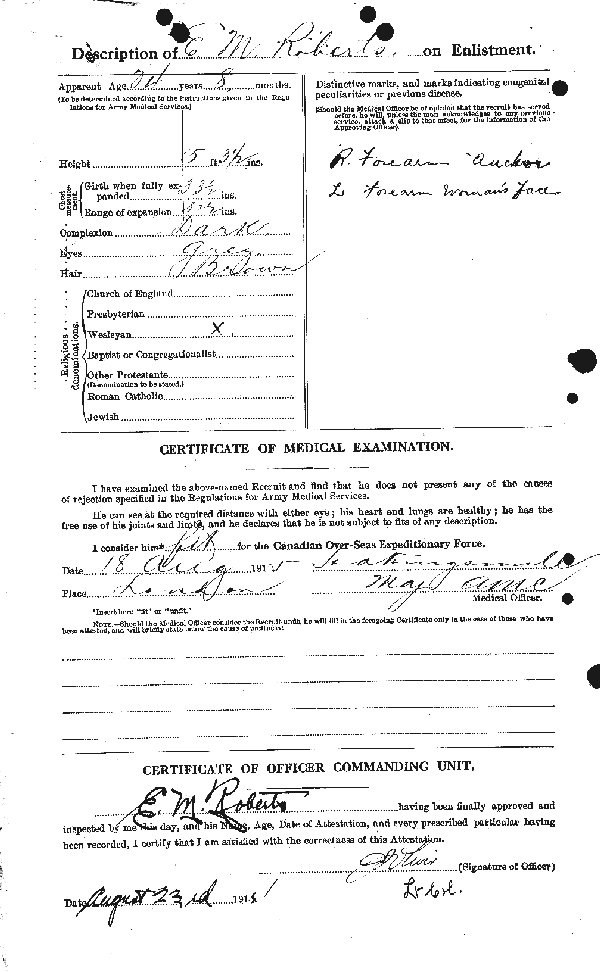 Description of E M Roberts. on Enlistment.
Apparent Age 24 years 8 months.
(To be determined according to the instructions given in the Regu-
lations for Army Medical Services.)
Height 5 ft. 3½ ins.
Chest measurement. Girth when fully ex-
panded ins.
Range of expansion ins.
Complexion Dark
Eyes Grey
Hair Brown
Religious denominations.
Church of England
Presbyterian
Wesleyan X
Baptist or Congregationalist
Other Protestants
(Denomination to be stated.)
Roman Catholic
Jewish
Distinctive marks, and marks indicating congenital
peculiarities or previous disease.
(Should the Medical Officer be of opinion that the recruit has served
before, he will, unless the man acknowledges to any previous
service, attach a slip to that effect, for the information of the
Approving Officer).
R. Forearm Anchor
L Forearm Woman's face
CERTIFICATE OF MEDICAL EXAMINATION.
I have examined the above-named Recruit and find that he does not present any of the causes
of rejection specified in the Regulations for Army Medical Services.
He can see at the required distance with either eye; his heart and lungs are healthy; he has the
free use of his joints and limbs, and he declares that he is not subject to fits of any description.
I consider him* fit for the Canadian Over-Seas Expeditionary Force.
Date 18 Aug 1915
Place London Maj AMC
Medical Officer.
*Insert here "fit" or "unfit."
NOTE.—Should the Medical Officer consider the Recruit unfit, he will fill in the foregoing Certificate only in the case of those who have
been attested, and will briefly state below the cause of unfitness:—
CERTIFICATE OF OFFICER COMMANDING UNIT.
E. M. Roberts having been finally approved and
inspected by me this day, and his Name, Age, Date of Attestation, and every prescribed particular having
been recorded, I certify that I am satisfied with the correctness of this Attestation.
(Signature of Officer)
Lt Col.
Date August 23rd 1915